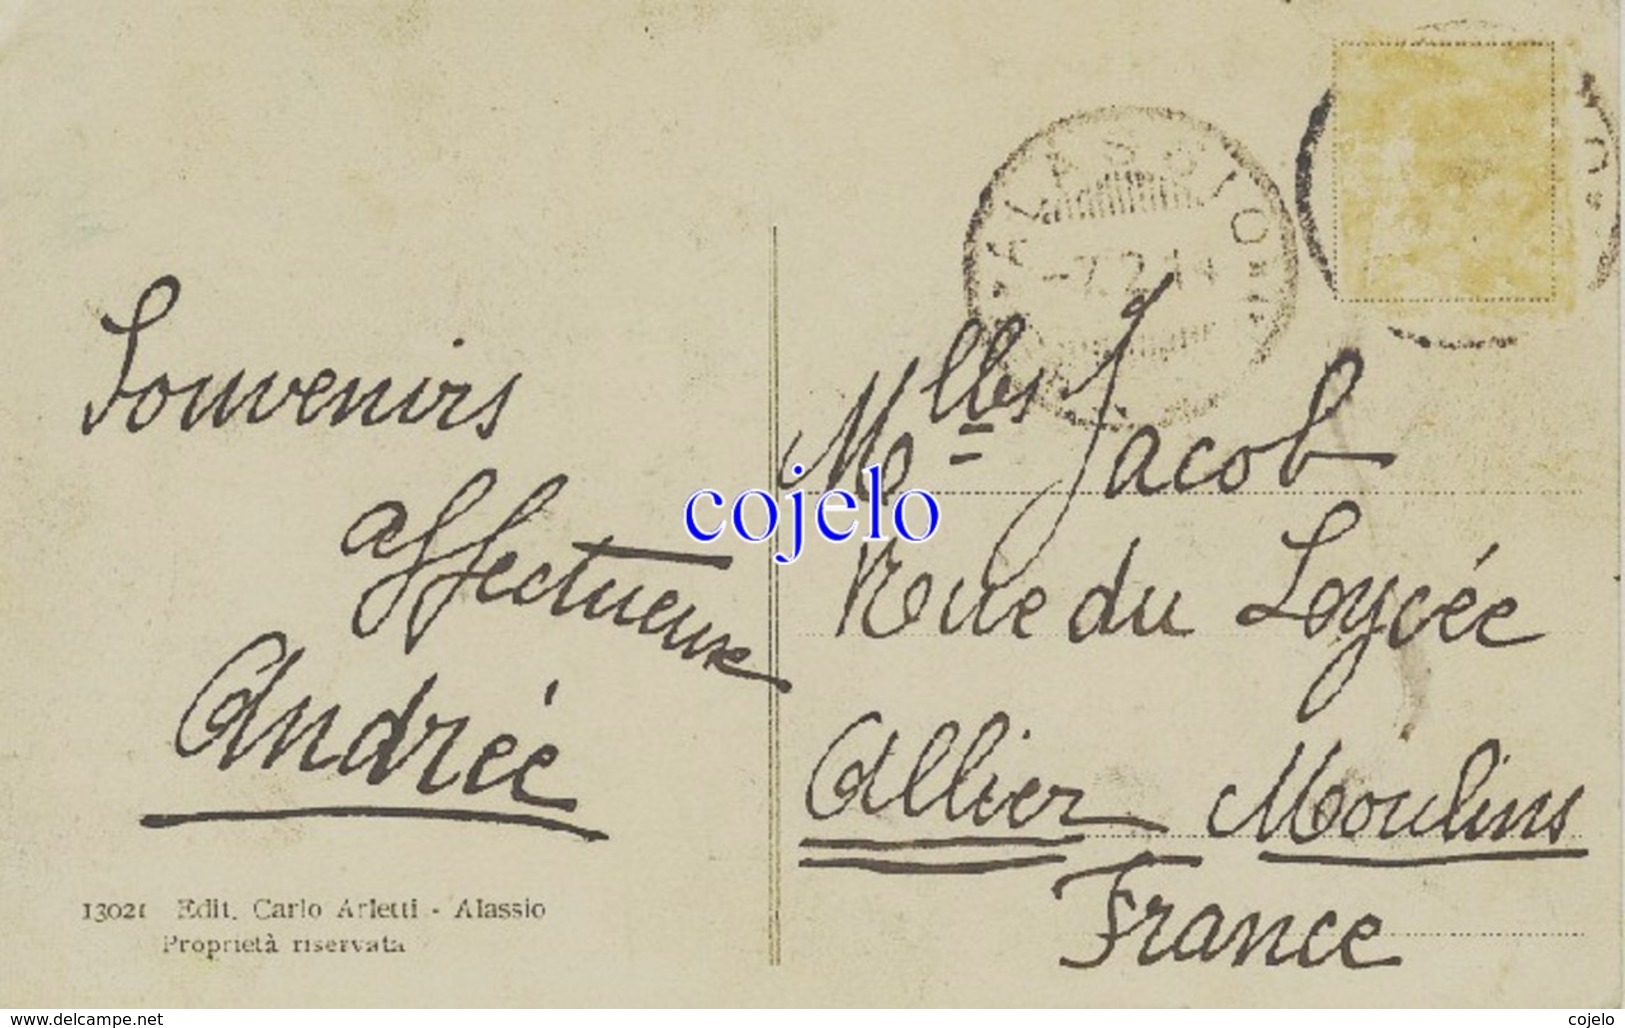 ALASSIO
Souvenirs
affectueux
Andrée
Mlles Jacob
Rue du Loycée
Allier Moulins
France
cojelo
13021 Edit. Carlo Arletti - Alassio
Proprietà riservata
www.delcampe.net
cojelo